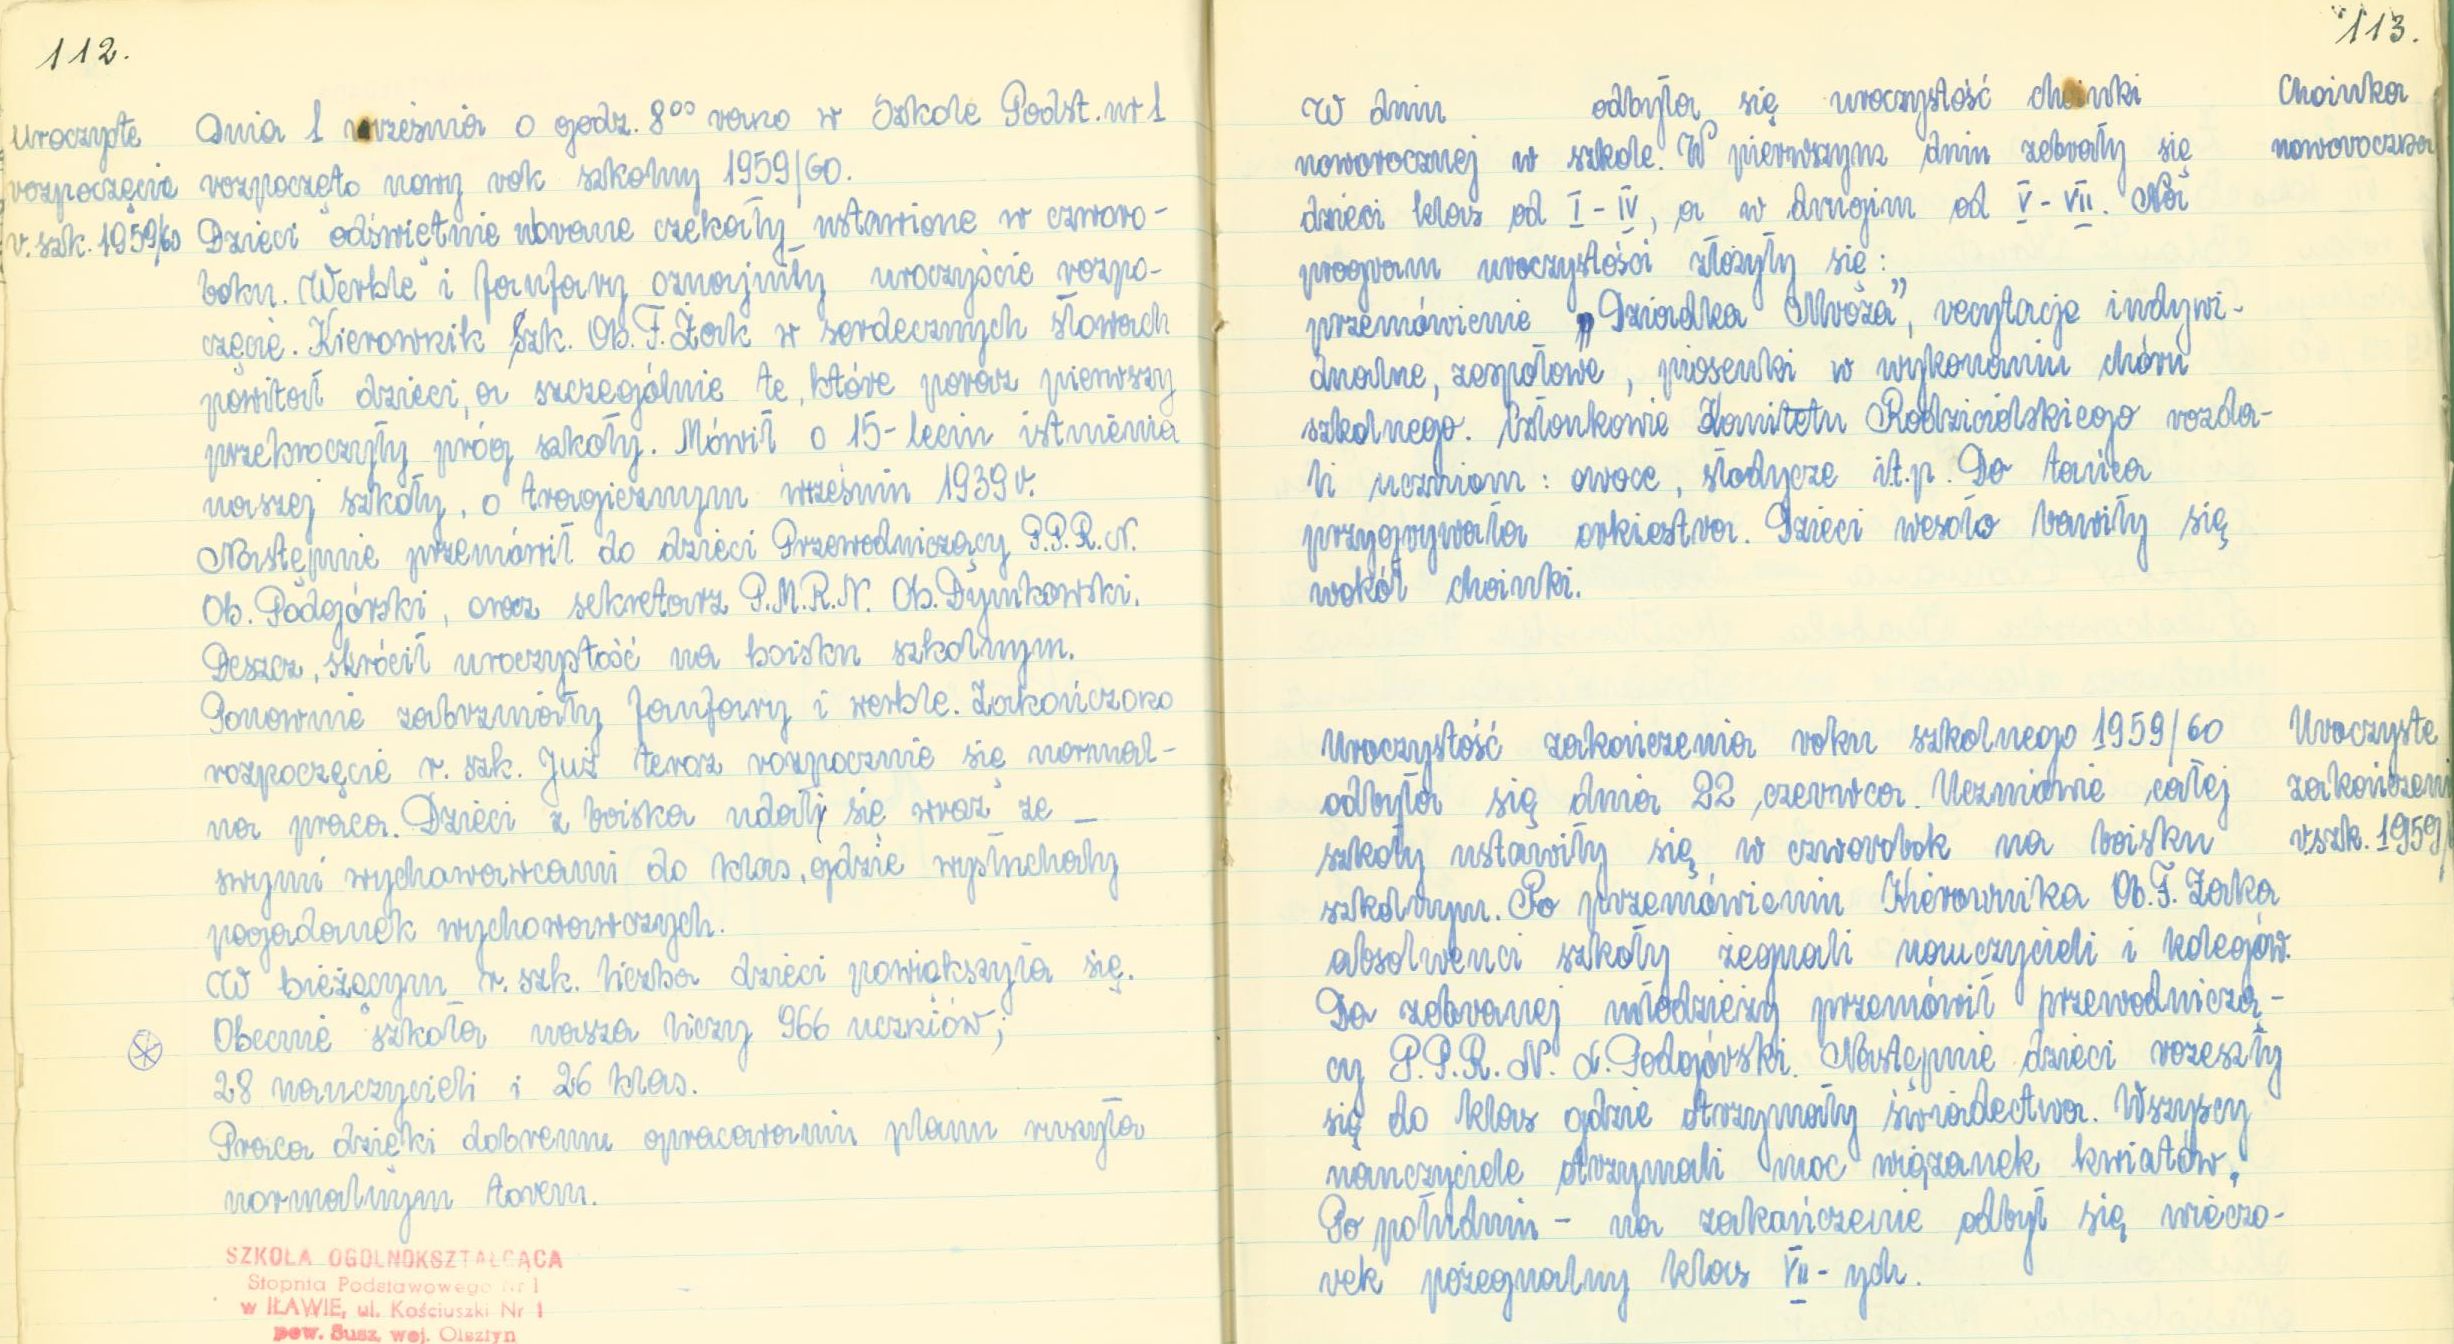 112.
Uroczyste
rozpoczęcie
r. szk. 1959/60
Dnia 1 września o godz. 8⁰⁰ rano w Szkole Podst. nr 1
rozpoczęto nowy rok szkolny 1959/60.
Dzieci odświętnie ubrane czekały ustawione w czworo-
boku. Werble i fanfary oznajmiły uroczyście rozpo-
częcie. Kierownik Szk. Ob. F. Żak w serdecznych słowach
powitał dzieci, a szczególnie te, które poraz pierwszy
przekroczyły próg szkoły. Mówił o 15-leciu istnienia
naszej szkoły, o tragicznym wrześniu 1939 r.
Następnie przemówił do dzieci Przewodniczący P.P.R.N.
Ob. Podgórski, oraz sekretarz P.M.R.N. Ob. Dymkowski.
Deszcz, skrócił uroczystość na boisku szkolnym.
Ponownie zabrzmiały fanfary i werble. Zakończono
rozpoczęcie r. szk. Już teraz rozpocznie się normal-
na praca. Dzieci z boiska udały się wraz ze
swymi wychowawcami do klas, gdzie wysłuchały
pogadanek wychowawczych.
W bieżącym r. szk. liczba dzieci powiększyła się.
Obecnie szkoła nasza liczy 966 uczniów;
28 nauczycieli i 26 klas.
Praca dzięki dobremu opracowaniu planu ruszyła
normalnym torem.
SZKOŁA OGÓLNOKSZTAŁCĄCA
Stopnia Podstawowego Nr 1
w IŁAWIE, ul. Kościuszki Nr 1
pow. Susz, woj. Olsztyn
113.
Choinka
noworoczna
W dniu odbyła się uroczystość choinki
noworocznej w szkole. W pierwszym dniu zebrały się
dzieci klas od I - IV, a w drugim od V - VII. Na
program uroczystości złożyły się:
przemówienie „Dziadka Mroza", recytacje indywi-
dualne, zespołowe, piosenki w wykonaniu chóru
szkolnego. Członkowie Komitetu Rodzicielskiego rozda-
li uczniom: owoce, słodycze i.t.p. Do tańca
przygrywała orkiestra. Dzieci wesoło bawiły się
wokół choinki.
Uroczyste
zakończeni
r.szk. 1959/
Uroczystość zakończenia roku szkolnego 1959/60
odbyła się dnia 22 czerwca. Uczniowie całej
szkoły ustawiły się w czworobok na boisku
szkolnym. Po przemówieniu Kierownika Ob. F. Żaka
absolwenci szkoły żegnali nauczycieli i kolegów.
Do zebranej młodzieży przemówił przewodniczą-
cy P.P.R.N. ob. Podgórski. Następnie dzieci rozeszły
się do klas gdzie otrzymały świadectwa. Wszyscy
nauczyciele otrzymali moc wiązanek kwiatów.
Po południu - na zakończenie odbył się wieczo-
rek pożegnalny klas VII - ych.